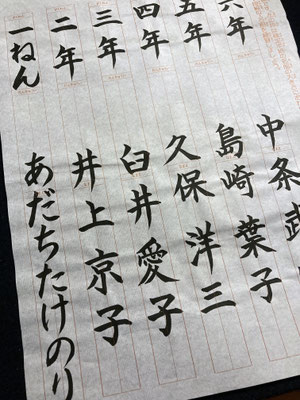 六年 中条武
五年 島崎葉子
四年 久保洋三
三年 臼井愛子
二年 井上京子
一ねん あだちたけのり